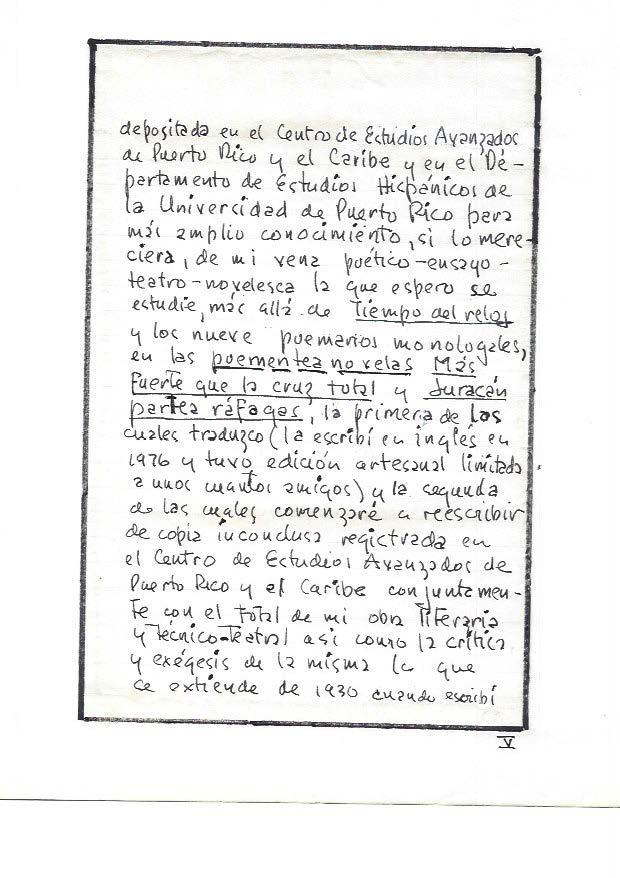 depositada en el Centro de Estudios Avanzados
de Puerto Rico y el Caribe y en el De-
partamento de Estudios Hispánicos de
la Universidad de Puerto Rico para
más amplio conocimiento, si lo mere-
ciera, de mi vena poético-ensayo-
teatro-novelesca la que espero se
estudie, más allá de Tiempo del reloj
y los nueve poemarios monologales,
en las poementeanovelas Más
fuerte que la cruz total y Juracán
partea ráfagas, la primera de las
cuales traduzco (la escribí en inglés en
1976 y tuvo edición artesanal limitada
a unos cuantos amigos) y la segunda
de las cuales comenzaré a reescribir
de copia inconclusa registrada en
el Centro de Estudios Avanzados de
Puerto Rico y el Caribe conjuntamen-
te con el total de mi obra literaria
y técnico-teatral así como la crítica
y exégesis de la misma lo que
se extiende de 1930 cuando escribí
V